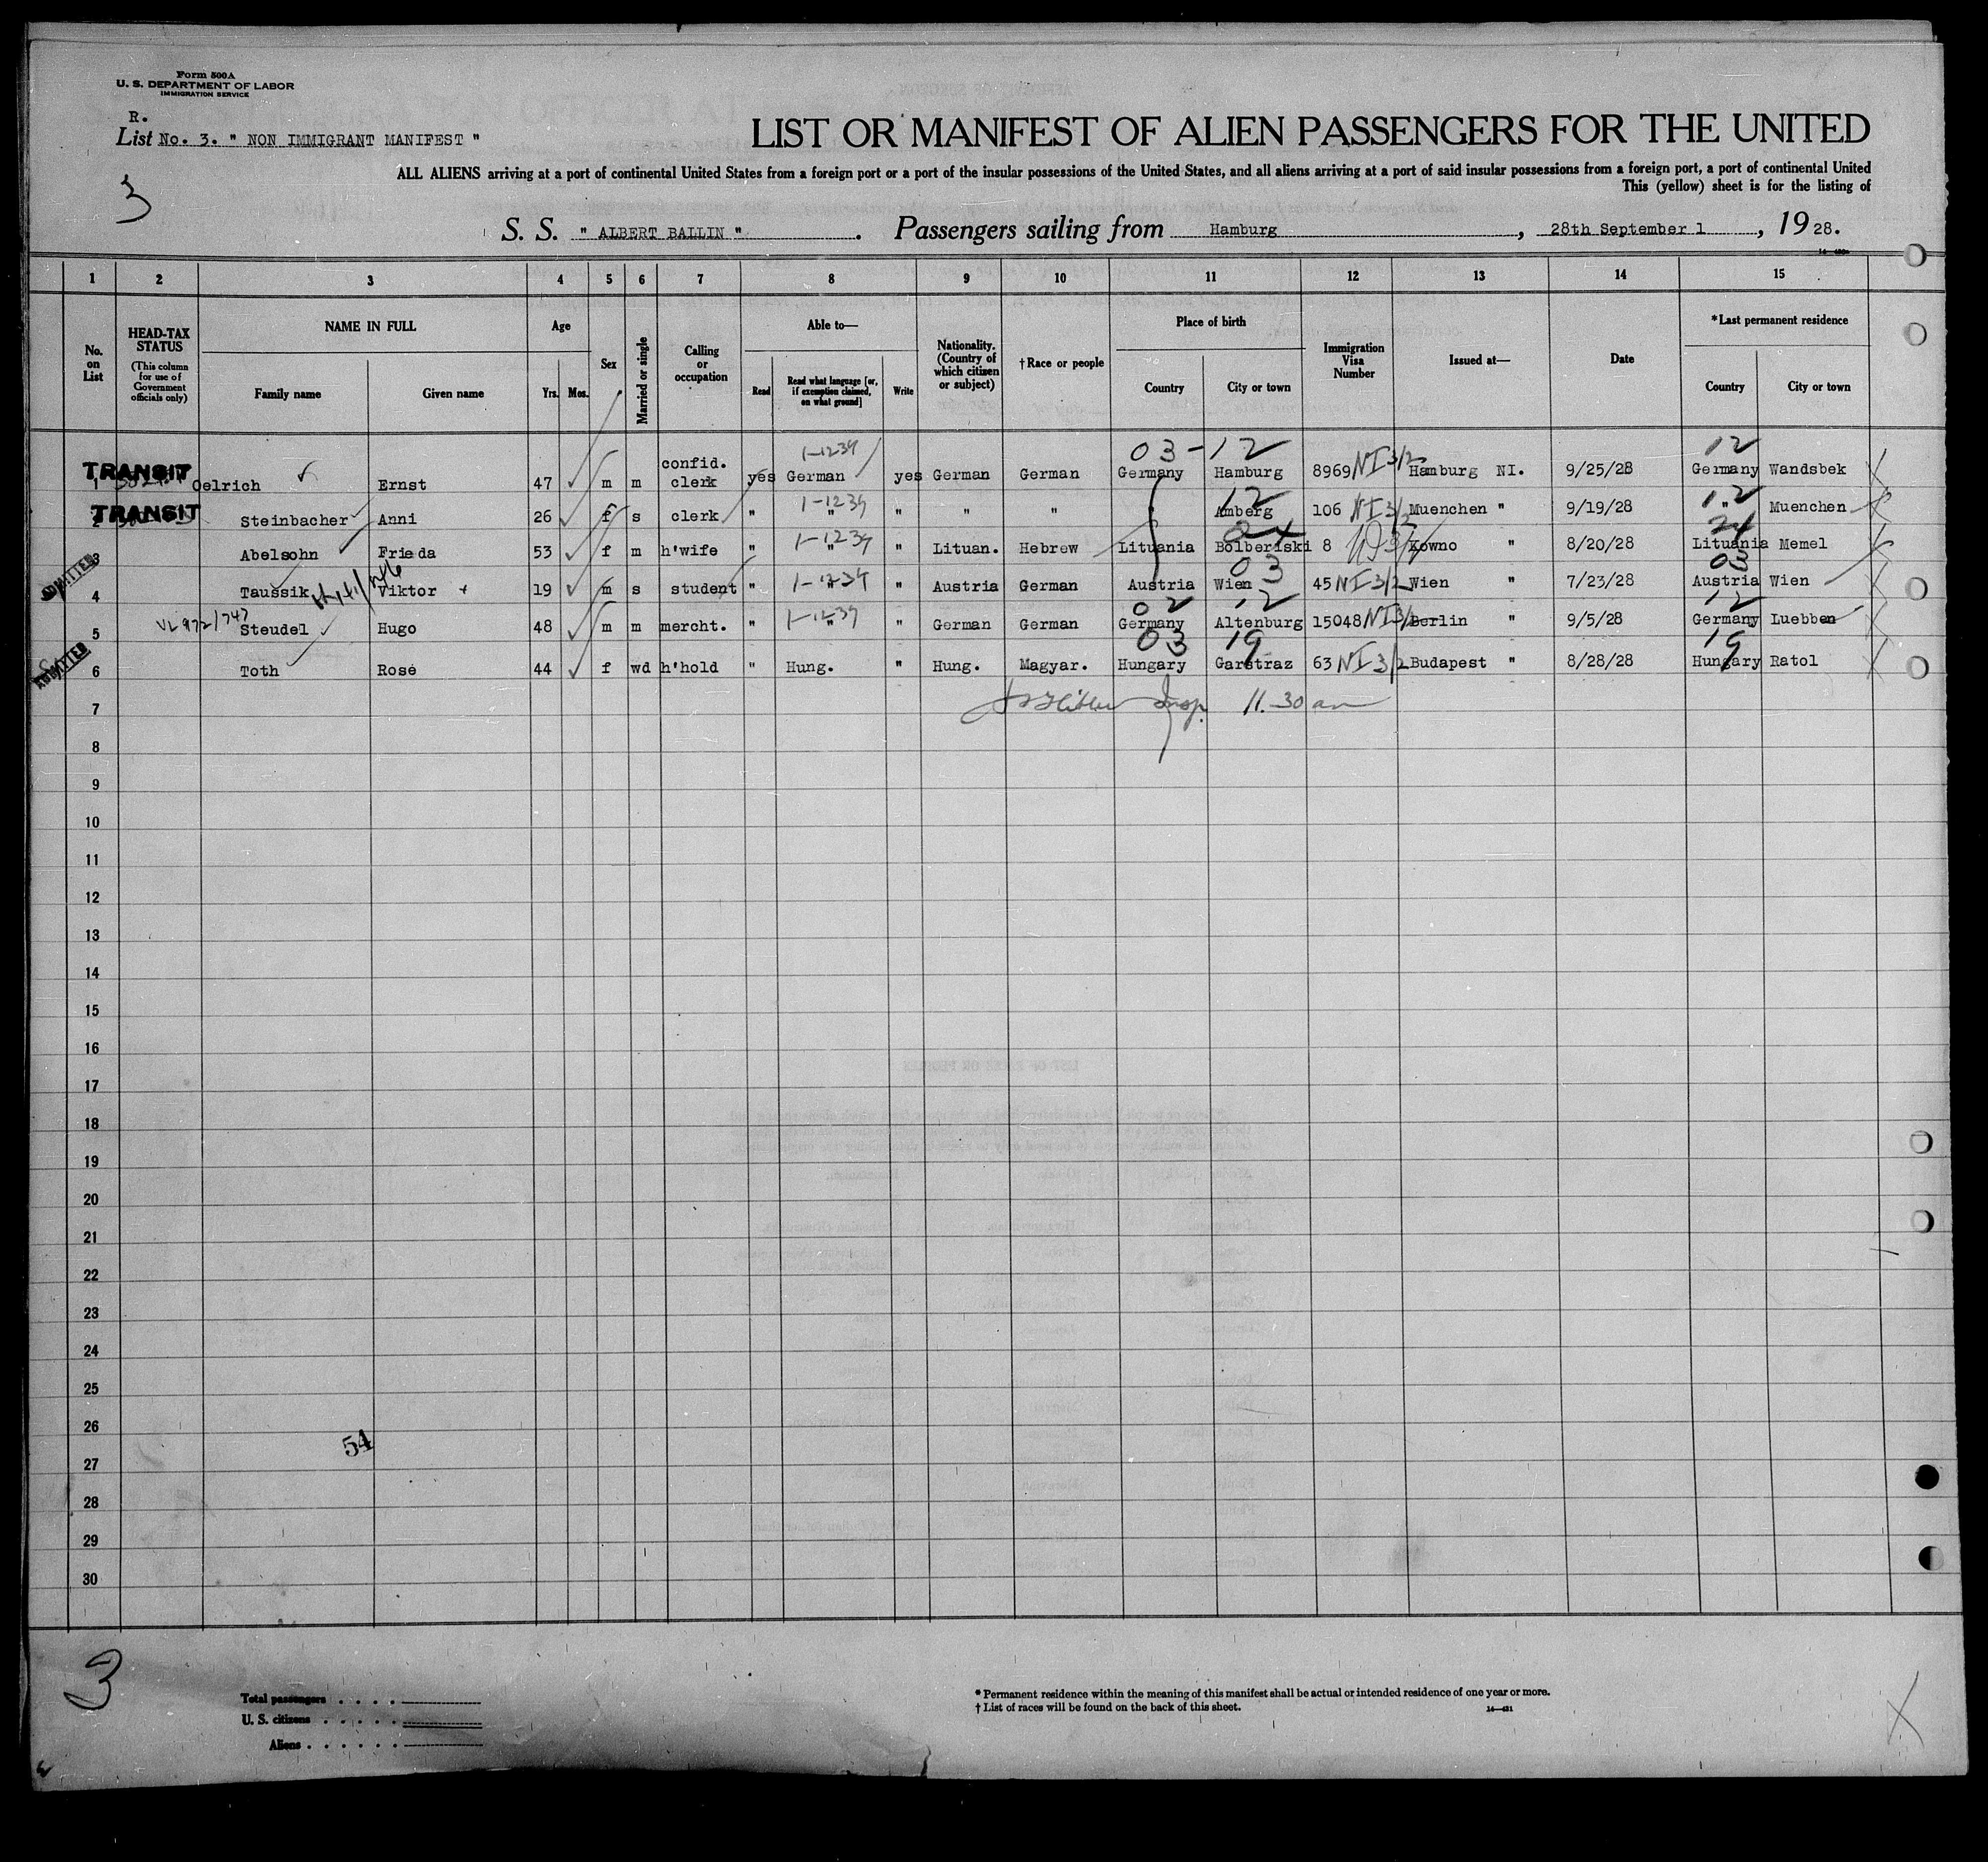 Form 500A
U. S. DEPARTMENT OF LABOR
IMMIGRATION SERVICE
R.
List No. 3. " NON IMMIGRANT MANIFEST "
3
LIST OR MANIFEST OF ALIEN PASSENGERS FOR THE UNITED
ALL ALIENS arriving at a port of continental United States from a foreign port or a port of the insular possessions of the United States, and all aliens arriving at a port of said insular possessions from a foreign port, a port of continental United
This (yellow) sheet is for the listing of
S. S. " ALBERT BALLIN ". Passengers sailing from Hamburg, 28th September 1, 1928.
1 2 3 4 5 6 7 8 9 10 11 12 13 14 15
No. on List
HEAD-TAX STATUS (This column for use of Government officials only)
NAME IN FULL
Family name Given name
Age
Yrs. Mos.
Sex
Married or single
Calling or occupation
Able to—
Read Read what language [or, if exemption claimed, on what ground] Write
Nationality. (Country of which citizen or subject)
† Race or people
Place of birth
Country City or town
Immigration Visa Number
Issued at—
Date
* Last permanent residence
Country City or town
1-1239 03-12 12
TRANSIT 1 Oelrich Ernst 47 m m confid. clerk yes German yes German German Germany Hamburg 8969 NI 3/2 Hamburg NI. 9/25/28 Germany Wandsbek
1-1239 12 12
TRANSIT 2 Steinbacher Anni 26 f s clerk " " " " " Amberg 106 NI 3/2 Muenchen " 9/19/28 " Muenchen
1-1239 24 24
3 Abelsohn Frieda 53 f m h'wife " " " Lituan. Hebrew Lituania Bolberiski 8 Kowno " 8/20/28 Lituania Memel
1-1239 03 03
ADMITTED 4 Taussik Viktor 19 m s student " " " Austria German Austria Wien 45 NI 3/2 Wien " 7/23/28 Austria Wien
1-1239 02 12 12
5 Steudel Hugo 48 m m mercht. " " " German German Germany Altenburg 15048 NI 3/2 Berlin " 9/5/28 Germany Luebben
03 19 19
ADMITTED 6 Toth Rosé 44 f wd h'hold " Hung. " Hung. Magyar. Hungary Garstraz 63 NI 3/2 Budapest " 8/28/28 Hungary Ratol
7 Insp. 11.30 am
8
9
10
11
12
13
14
15
16
17
18
19
20
21
22
23
24
25
26
54
27
28
29
30
3
Total passengers
U. S. citizens
Aliens
* Permanent residence within the meaning of this manifest shall be actual or intended residence of one year or more.
† List of races will be found on the back of this sheet.
14—431